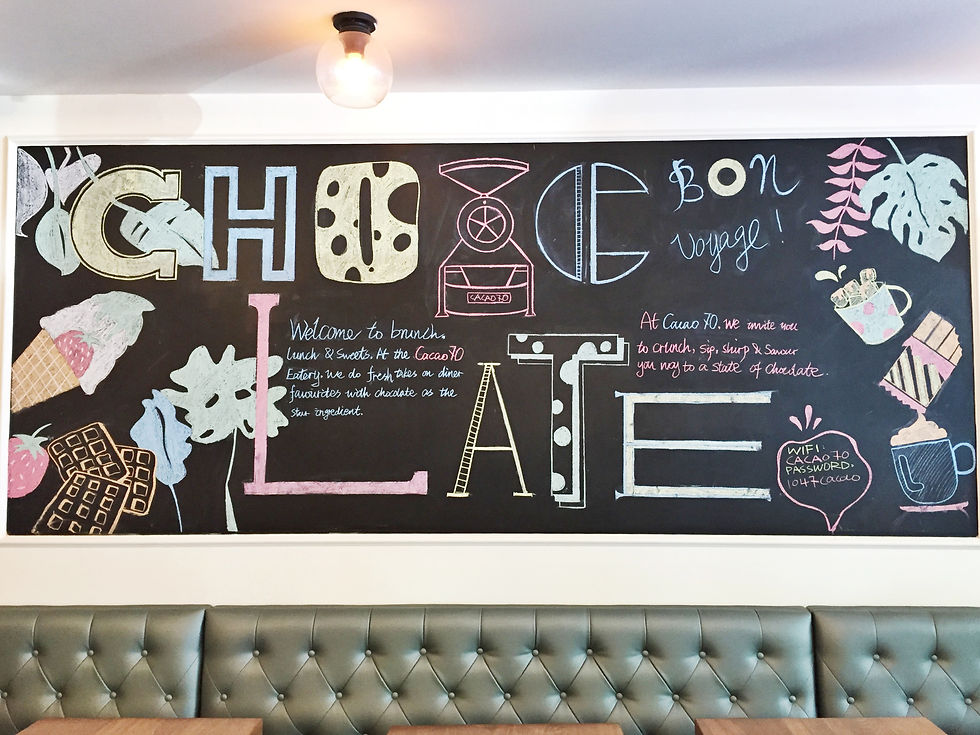 CHOC
BON
Voyage!
CACAO 70
LATE
Welcome to brunch.
Lunch & Sweets. At the Cacao 70
Eatery. we do fresh takes on diner
favourites with chocolate as the
star ingredient.
At Cacao 70. we invite you
to crunch, sip, slurp & savour
you way to a state of chocolate.
WIFI:
CACAO 70
PASSWORD.
1047cacao